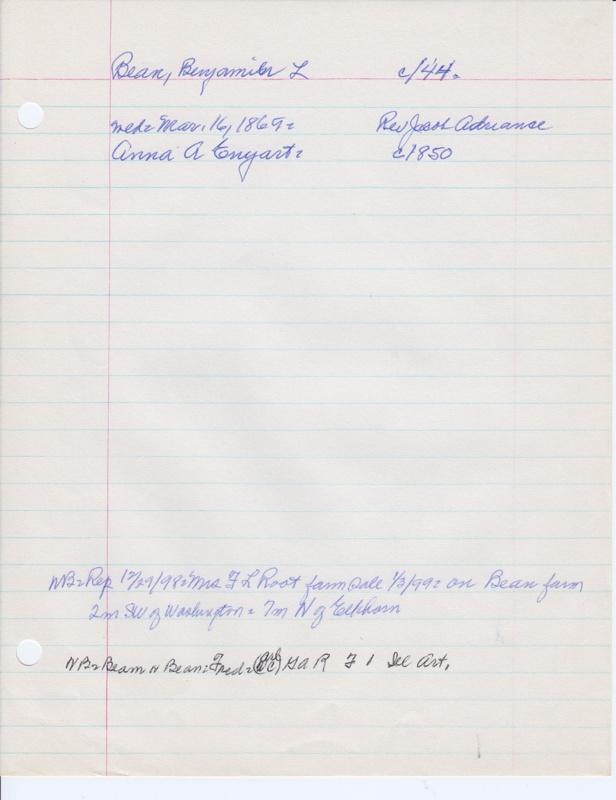 Bean, Benjamin L c/44.
med= Mar. 16, 1869= Rev Jacob Adriance
Anna A Enyart= c1850
NB=Rep 12/29/98= Mrs F L Root farm sale 1/3/99= on Bean farm
2m SW of Washington = 7m N of Elkhorn
NB=Beam or Bean= Fred= G A R F 1 Ill Art.